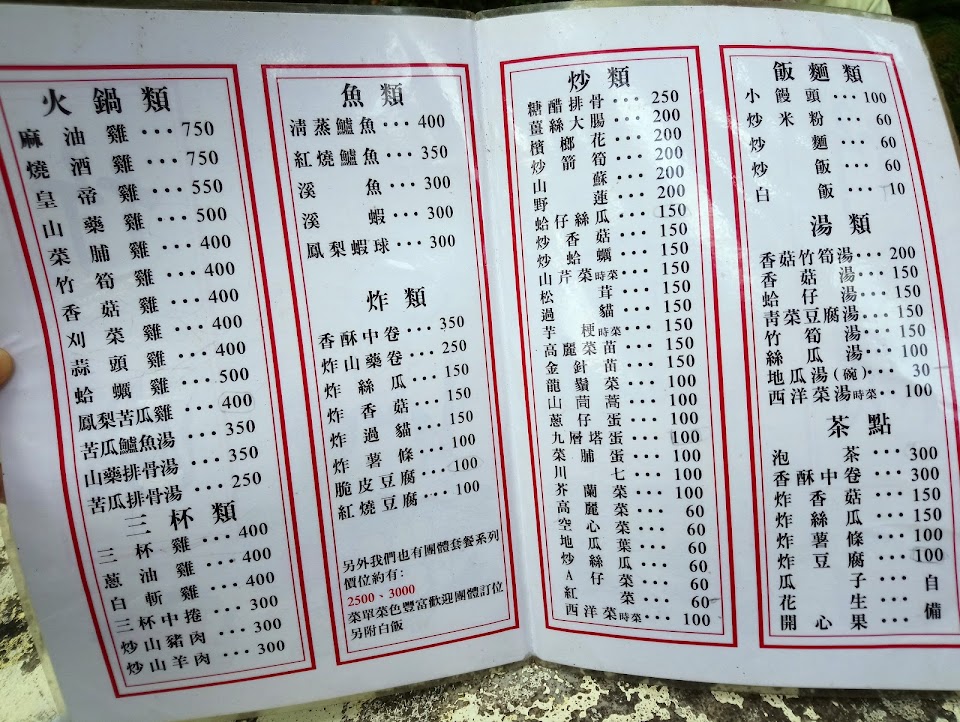 火鍋類
麻油雞···750
燒酒雞···750
皇帝雞···550
山藥雞···500
菜脯雞···400
竹筍雞···400
香菇雞···400
刈菜雞···400
蒜頭雞···400
蛤蠣雞···500
鳳梨苦瓜雞···400
苦瓜鱸魚湯···350
山藥排骨湯···350
苦瓜排骨湯···250
三杯類
三杯雞···400
蔥油雞···400
白斬雞···400
三杯中捲···300
炒山豬肉···300
炒山羊肉···300
魚類
清蒸鱸魚···400
紅燒鱸魚···350
溪魚···300
溪蝦···300
鳳梨蝦球···300
炸類
香酥中卷···350
炸山藥卷···250
炸絲瓜···150
炸香菇···150
炸過貓···150
炸薯條···100
脆皮豆腐···100
紅燒豆腐···100
另外我們也有團體套餐系列
價位約有:
2500、3000
菜單菜色豐富歡迎團體訂位
另附白飯
炒類
糖醋排骨···250
薑絲大腸···200
檳榔花···200
炒箭筍···200
山蘇···200
野蓮···200
蛤仔絲瓜···150
炒香菇···150
炒蛤蠣···150
山芹菜時菜···150
松茸···150
過貓···150
芋梗時菜···150
高麗菜苗···150
金針苗···150
龍鬚菜···100
山茼蒿···100
蔥仔蛋···100
九層塔蛋···100
菜脯蛋···100
川七···100
芥蘭菜···100
高麗菜···60
空心菜···60
地瓜葉···60
炒絲瓜···60
A仔菜···60
紅菜···60
西洋菜時菜···100
飯麵類
小饅頭···100
炒米粉···60
炒麵···60
炒飯···60
白飯···10
湯類
香菇竹筍湯···200
香菇湯···150
蛤仔湯···150
青菜豆腐湯···150
竹筍湯···150
絲瓜湯···100
地瓜湯(碗)···30
西洋菜湯時菜···100
茶點
泡茶···300
香酥中卷···300
炸香菇···150
炸絲瓜···150
炸薯條···100
炸豆腐···100
瓜子···自
花生···
開心果···備